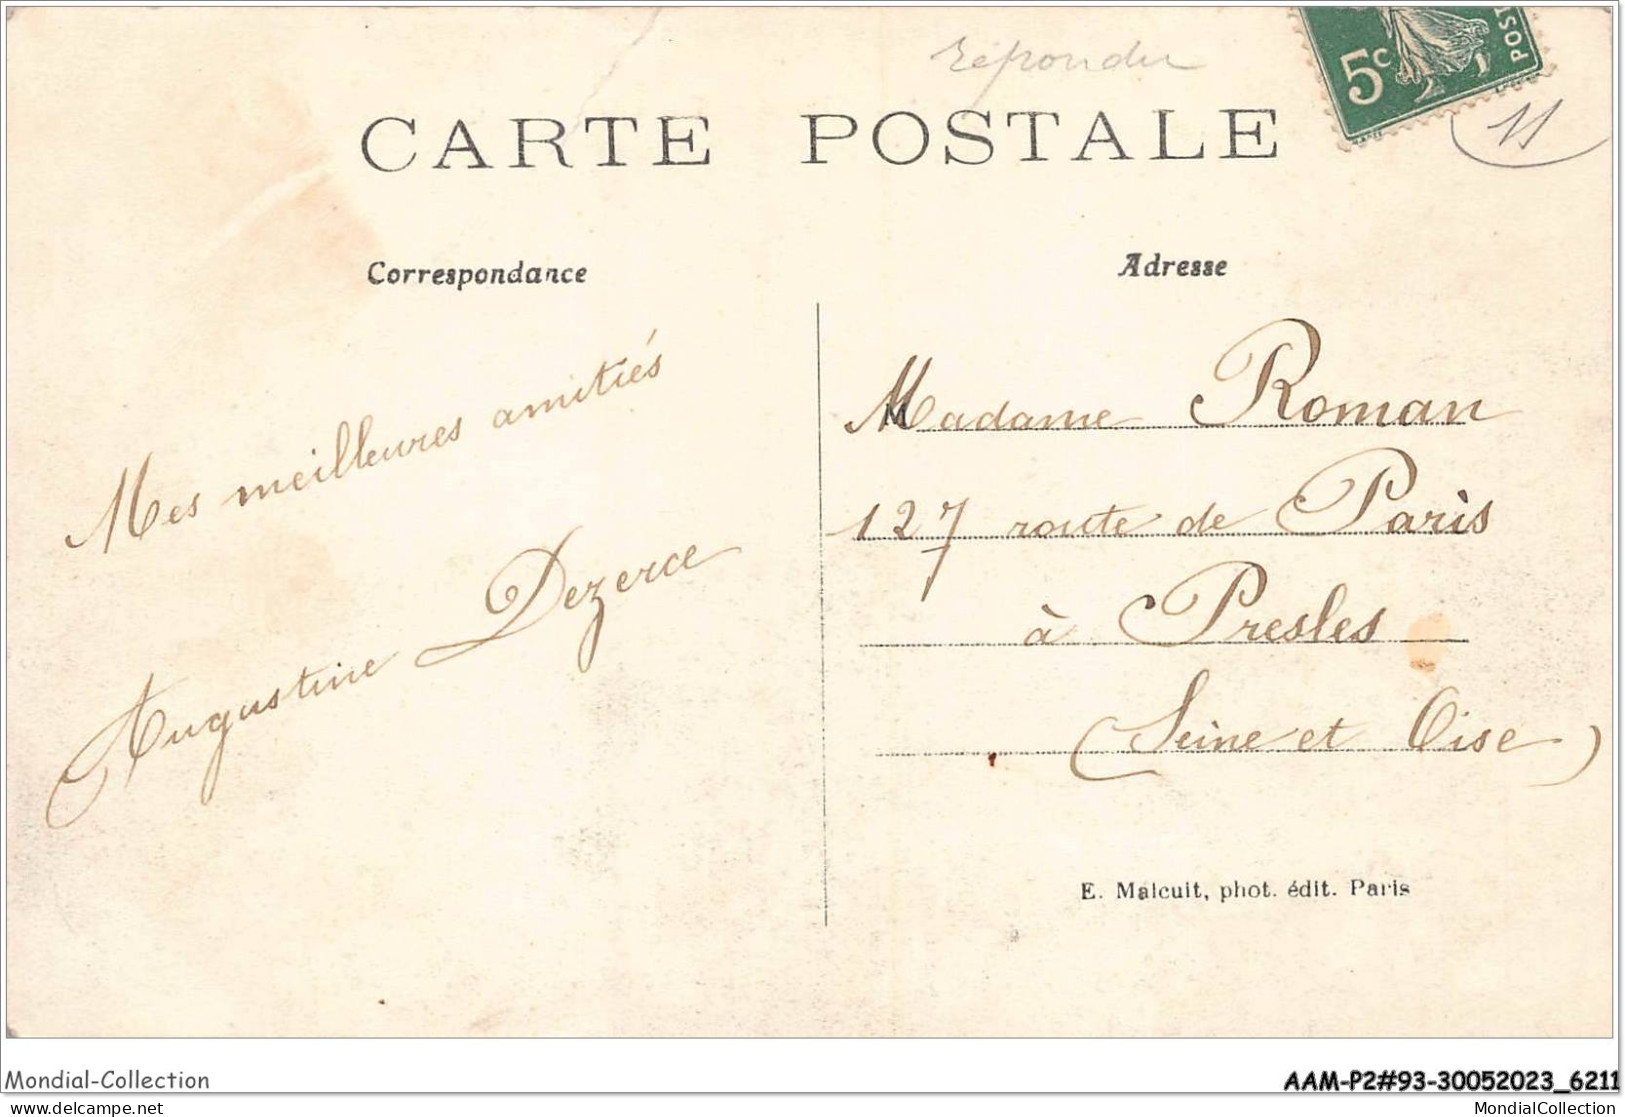 répondu
5c
POST
11
CARTE POSTALE
Correspondance
Adresse
Mes meilleures amitiés
Augustine Dezerce
Madame Roman
127 route de Paris
à Presles
(Seine et Oise)
E. Malcuit, phot. édit. Paris
Mondial-Collection
AAM-P2#93-30052023_6211
www.delcampe.net
MondialCollection